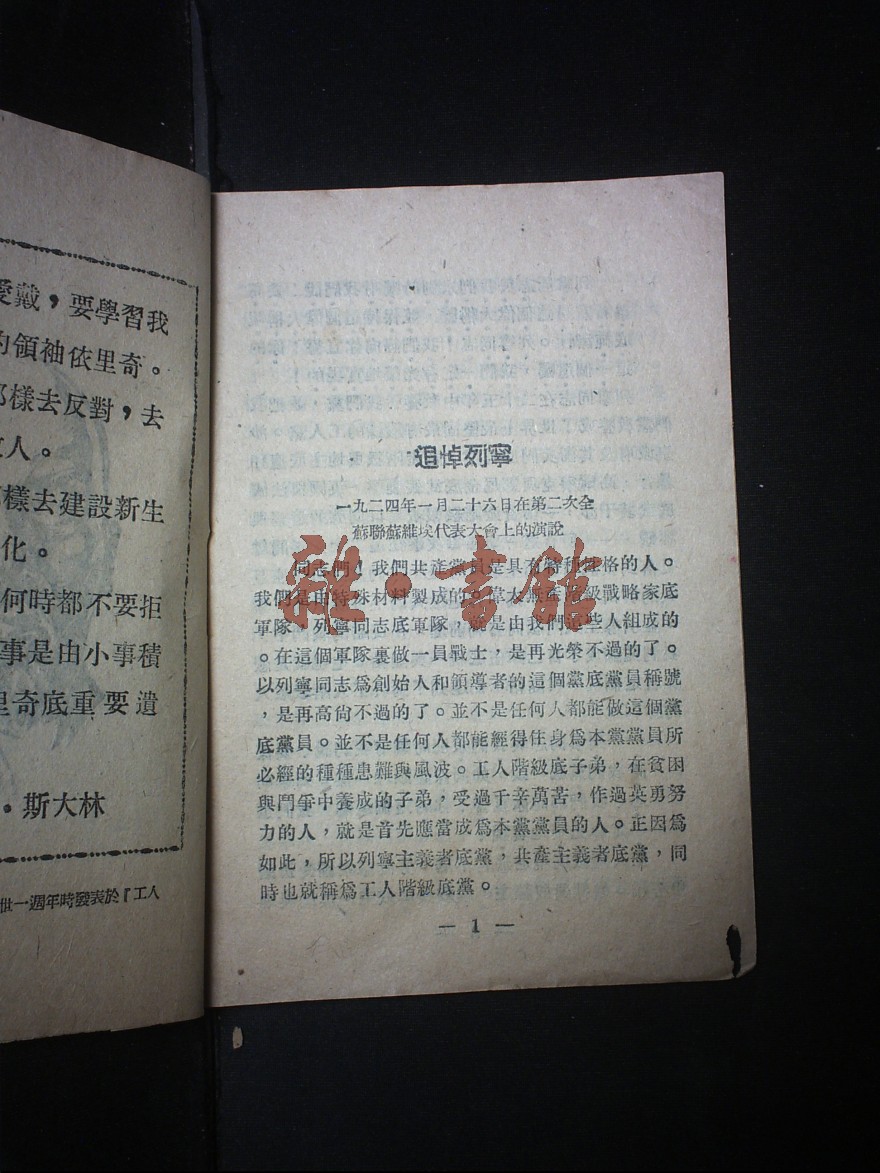 愛戴，要學習我
的領袖依里奇。
那樣去反對，去
人。
樣去建設新生
化。
何時都不要拒
事是由小事積
里奇底重要遺
・斯大林
世一週年時發表於『工人
追悼列寧
一九二四年一月二十六日在第二次全
蘇聯蘇維埃代表大會上的演說
同志們！我們共產黨員是具有特種性格的人。
我們是由特殊材料製成的。偉大無產階級戰略家底
軍隊，列寧同志底軍隊，就是由我們這些人組成的
。在這個軍隊裏做一員戰士，是再光榮不過的了。
以列寧同志爲創始人和領導者的這個黨底黨員稱號
，是再高尙不過的了。並不是任何人都能做這個黨
底黨員。並不是任何人都能經得住身爲本黨黨員所
必經的種種患難與風波。工人階級底子弟，在貧困
與鬥爭中養成的子弟，受過千辛萬苦，作過英勇努
力的人，就是首先應當成爲本黨黨員的人。正因爲
如此，所以列寧主義者底黨，共產主義者底黨，同
時也就稱爲工人階級底黨。
— 1 —
雜・書館